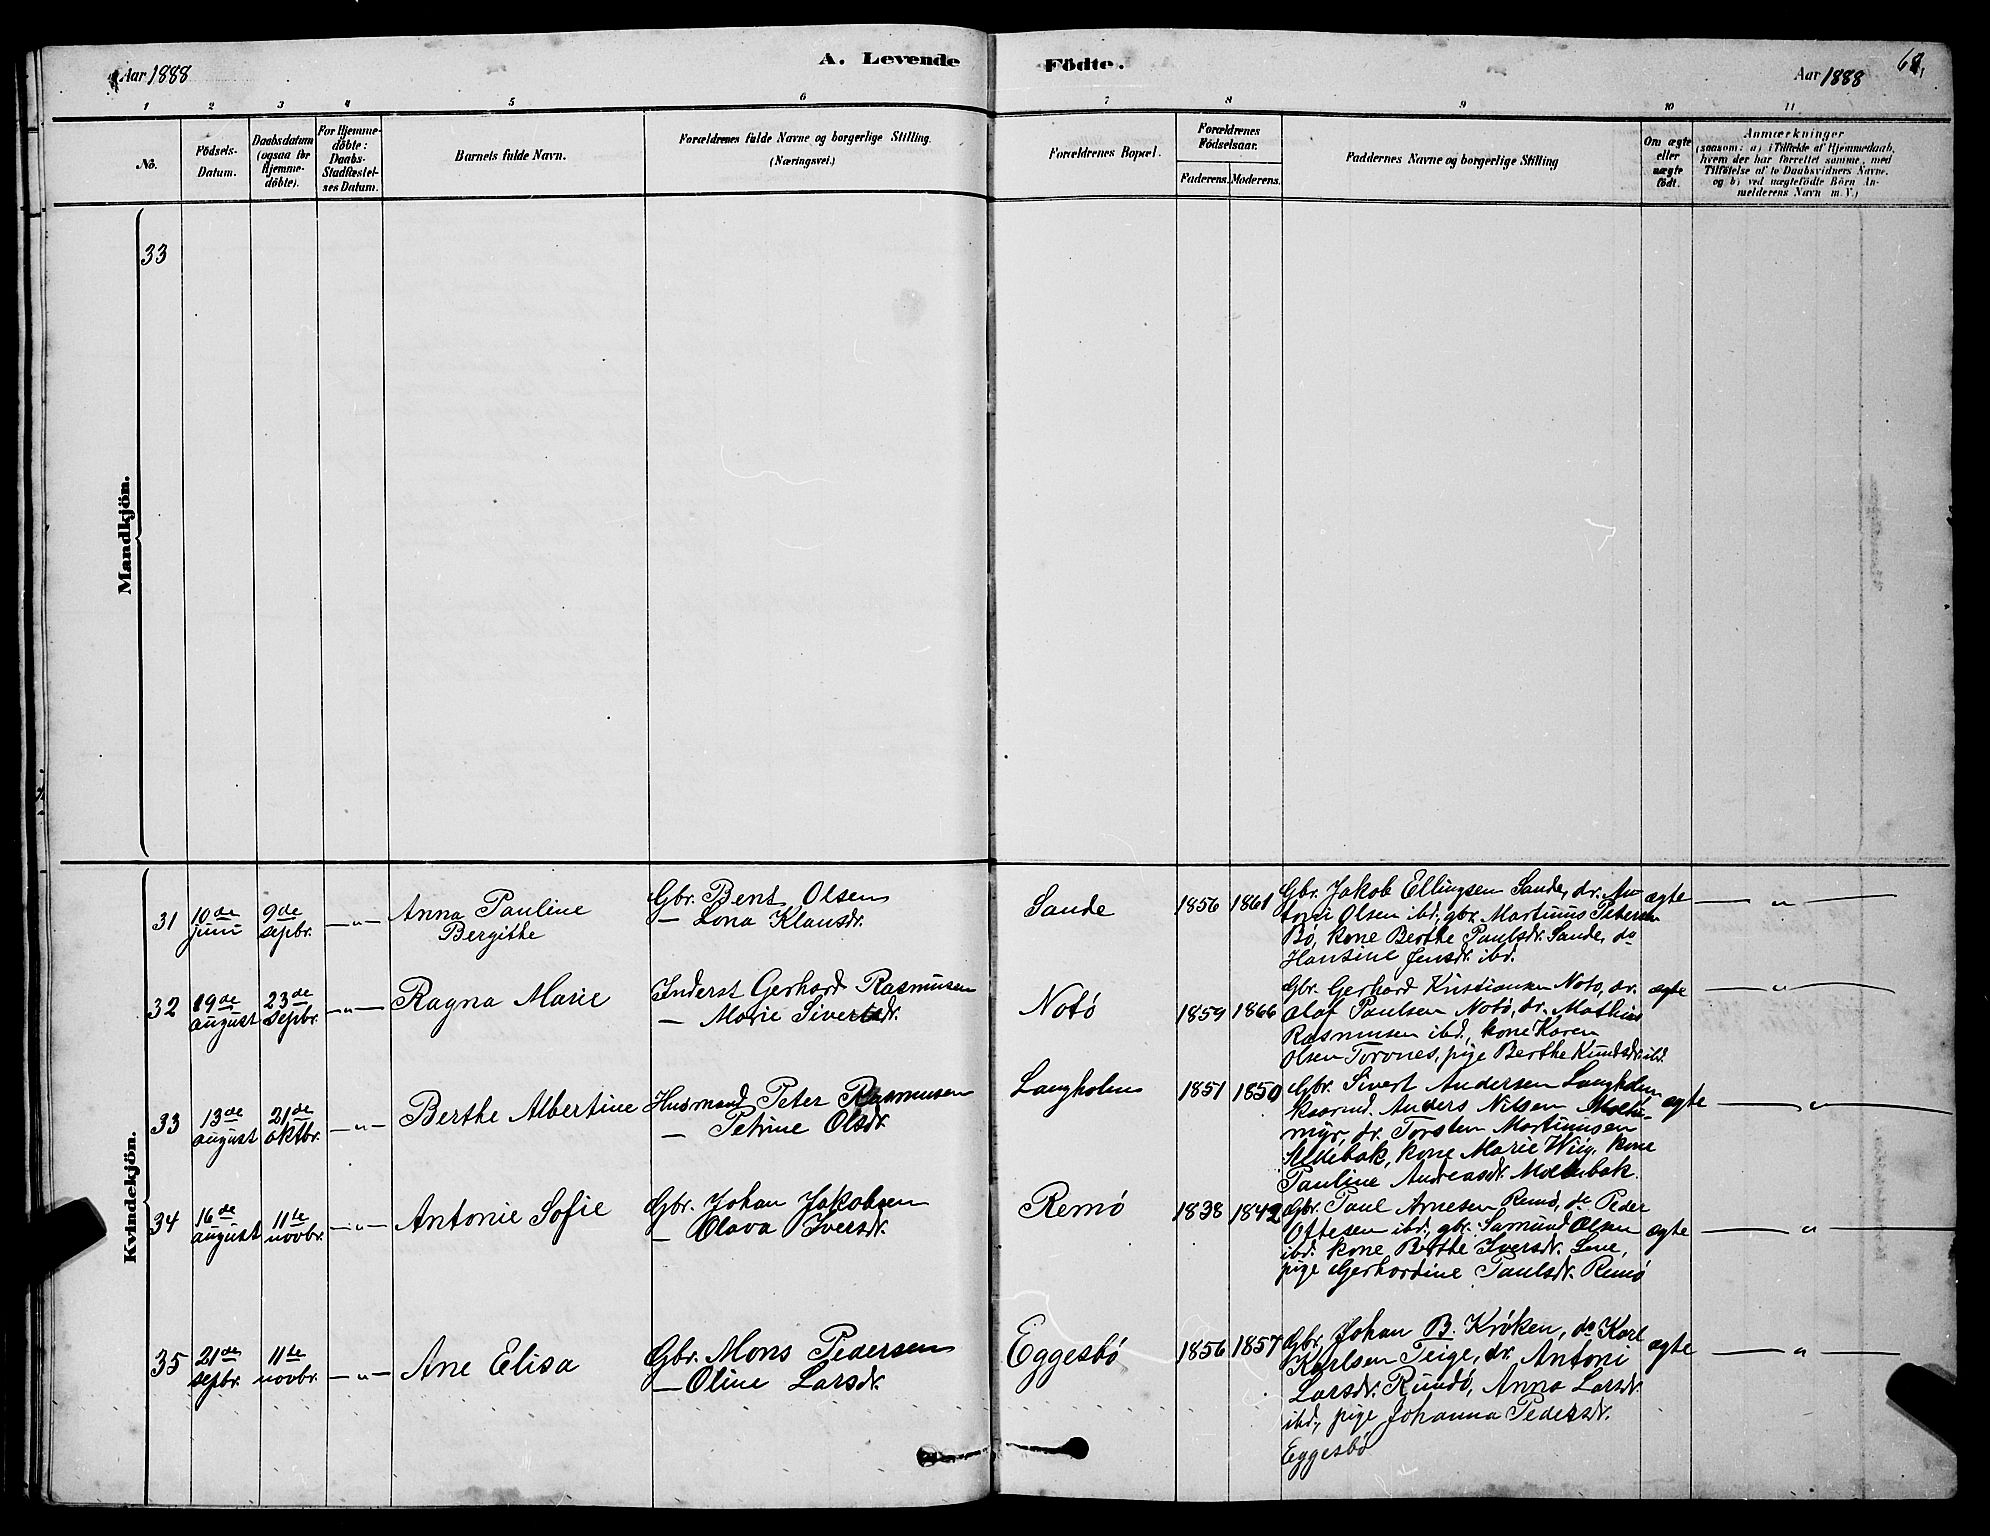 Aar 1888
A. Levende
Födte.
Aar 1888
1 2 3 4 5 6 7 8 9 10 11
No.
Födsels-
Datum.
Daabsdatum
(ogsaa for
Hjemme-
döbte).
For Hjemme-
döbte:
Daabs-
Stadfæstel-
ses Datum.
Barnets fulde Navn.
Forældrenes fulde Navne og borgerlige Stilling.
(Næringsvei.)
Forældrenes Bopæl.
Forældrenes
Födselsaar.
Faderens. Moderens.
Faddernes Navne og borgerlige Stilling
Om ægte
eller
uægte
födt.
Anmærkninger
(saasom: a) i Tilfælde af Hjemmedaab,
hvem der har forrettet samme, med
Tilföielse af to Daabsvidners Navne.
og b) ved uægtefödte Börn An-
melderens Navn m. V.)
Mandkjön.
33
Kvindekjön.
31
10de
juni
9de
sepbr.
— „ —
Anna Pauline
Bergithe
Gbr. Bent Olsen
— Lona Klausdr.
Sande
1856
1861
Gbr. Jakob Ellingsen Sande, dr. An-
toni Olsen ibd, gbr. Martinus Petersen
Bö, kone Berthe Paulsdr. Sande, do
Hansine Jensdr. ibd.
ægte
— „ —
32
19de
august
23de
sepbr.
— „ —
Ragna Marie
Inderst Gerhard Rasmusen
— Marie Sivertsdr.
Notö
1859
1866
Gbr. Gerhard Kristiansen Notö, dr.
Olaf Paulsen Notö, dr. Mathias
Rasmusen ibd, kone Karen
Olsen Torvnes, pige Berthe Knudsdr ibd.
ægte
— „ —
33
13de
august
21de
oktbr.
— „ —
Berthe Albertine
Husmand Peter Rasmusen
— Petrine Olsdr.
Langholm
1851
1850
Gbr. Sivert Andersen Langholm
kaarmd. Anders Nilsen
myr, dr. Torsten Martinusen
kone Marie Wiig, kone
Pauline Andreasdr.
ægte
— „ —
34
16de
august
11te
novbr.
— „ —
Antonie Sofie
Gbr. Johan Jakobsen
— Olava Iversdr.
Remö
1838
1842
Gbr. Paul Arnesen Remö, do Peder
Ottesen ibd, gbr. Samund Olsen
ibd. kone Berthe Iversdr. Lene,
pige Gerhardine Paulsdr. Remö
ægte
— „ —
35
21de
sepbr.
11te
novbr.
— „ —
Ane Elisa
Gbr. Mons Pedersen
— Oline Larsdr.
Eggesbö
1856
1857
Gbr. Johan B. Kröken, do Karl
Karlsen Teige, dr. Antoni
Larsdr. Rundö, Anna Larsdr.
ibd, pige Johanna Pedersdr.
Eggesbö
ægte
— „ —